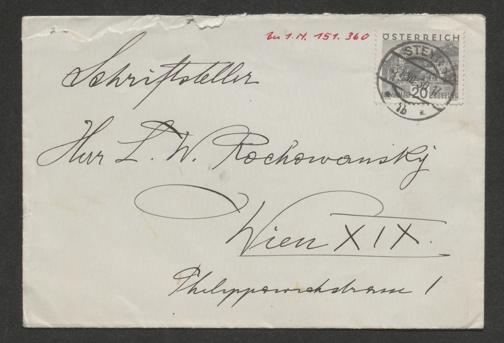 Zu I.N. 151.360
ÖSTERREICH
STEYR
20
1b
Schriftsteller
Herr L. W. Rochowanský
Wien XIX.
Philippowichstrasse 1